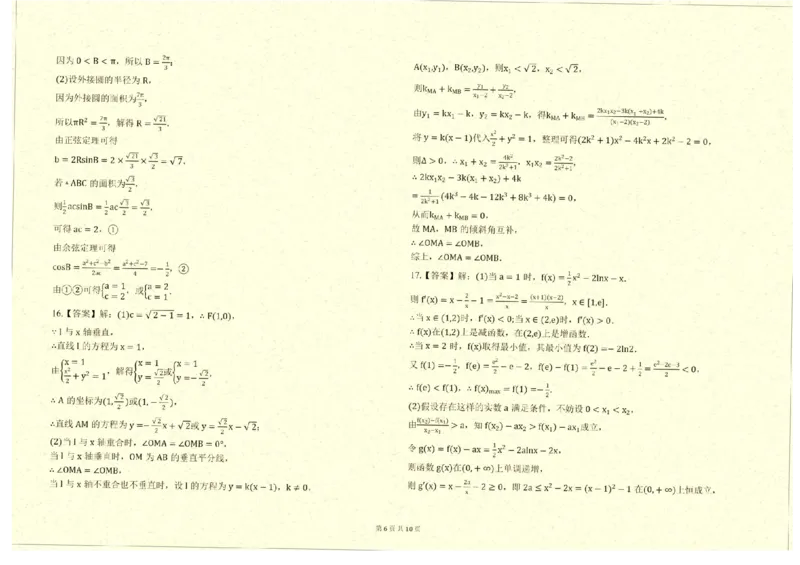 因为0 < B < π，所以 B = 2π/3，
(2)设外接圆的半径为 R，
因为外接圆的面积为7π/3，
所以πR² = 7π/3，解得 R = √21/3，
由正弦定理可得
b = 2RsinB = 2 × √21/3 × √3/2 = √7，
若▫ABC 的面积为√3/2，
则1/2acsinB = 1/2ac√3/2 = √3/2，
可得 ac = 2，①
由余弦定理可得
cosB = (a²+c²-b²)/2ac = (a²+c²-7)/4 = -1/2，②
由①②可得{a = 1 c = 2，或{a = 2 c = 1.
16.【答案】解：(1)c = √(2 − 1) = 1，∴ F(1,0)，
∵ l 与 x 轴垂直，
∴直线 l 的方程为 x = 1，
由{x = 1 x²/2 + y² = 1，解得{x = 1 y = √2/2或{x = 1 y = −√2/2，
∴ A 的坐标为(1,√2/2)或(1,−√2/2)，
∴直线 AM 的方程为 y = −√2/2x + √2或 y = √2/2x − √2；
(2)当 l 与 x 轴重合时，∠OMA = ∠OMB = 0°，
当 l 与 x 轴垂直时，OM 为 AB 的垂直平分线，
∴ ∠OMA = ∠OMB，
当 l 与 x 轴不重合也不垂直时，设 l 的方程为 y = k(x − 1)，k ≠ 0，
A(x₁,y₁)，B(x₂,y₂)，则x₁ < √2，x₂ < √2，
则k_MA + k_MB = y₁/(x₁−2) + y₂/(x₂−2)，
由y₁ = kx₁ − k，y₂ = kx₂ − k，得k_MA + k_MB = (2kx₁x₂−3k(x₁+x₂)+4k)/((x₁−2)(x₂−2))，
将 y = k(x − 1)代入x²/2 + y² = 1，整理可得(2k² + 1)x² − 4k²x + 2k² − 2 = 0，
则Δ > 0，∴ x₁ + x₂ = 4k²/(2k²+1)，x₁x₂ = (2k²−2)/(2k²+1)，
∴ 2kx₁x₂ − 3k(x₁ + x₂) + 4k
= 1/(2k²+1) (4k³ − 4k − 12k³ + 8k³ + 4k) = 0，
从而k_MA + k_MB = 0，
故 MA，MB 的倾斜角互补，
∴ ∠OMA = ∠OMB，
综上，∠OMA = ∠OMB.
17.【答案】解：(1)当 a = 1 时，f(x) = 1/2x² − 2lnx − x，
则 f′(x) = x − 2/x − 1 = (x²−x−2)/x = (x+1)(x−2)/x，x ∈ [1,e].
∴当 x ∈ (1,2)时，f′(x) < 0;当 x ∈ (2,e)时，f′(x) > 0.
∴ f(x)在(1,2)上是减函数，在(2,e)上是增函数.
∴当 x = 2 时，f(x)取得最小值，其最小值为 f(2) = − 2ln2.
又 f(1) = −1/2，f(e) = e²/2 − e − 2，f(e) − f(1) = e²/2 − e − 2 + 1/2 = (e²−2e−3)/2 < 0，
∴ f(e) < f(1)，∴ f(x)max = f(1) = −1/2.
(2)假设存在这样的实数 a 满足条件，不妨设 0 < x₁ < x₂.
由(f(x₂)−f(x₁))/(x₂−x₁) > a，知 f(x₂) − ax₂ > f(x₁) − ax₁成立，
令 g(x) = f(x) − ax = 1/2x² − 2alnx − 2x，
则函数 g(x)在(0, + ∞)上单调递增，
则 g′(x) = x − 2a/x − 2 ≥ 0，即 2a ≤ x² − 2x = (x − 1)² − 1 在(0, + ∞)上恒成立，
第 6 页 共 10 页